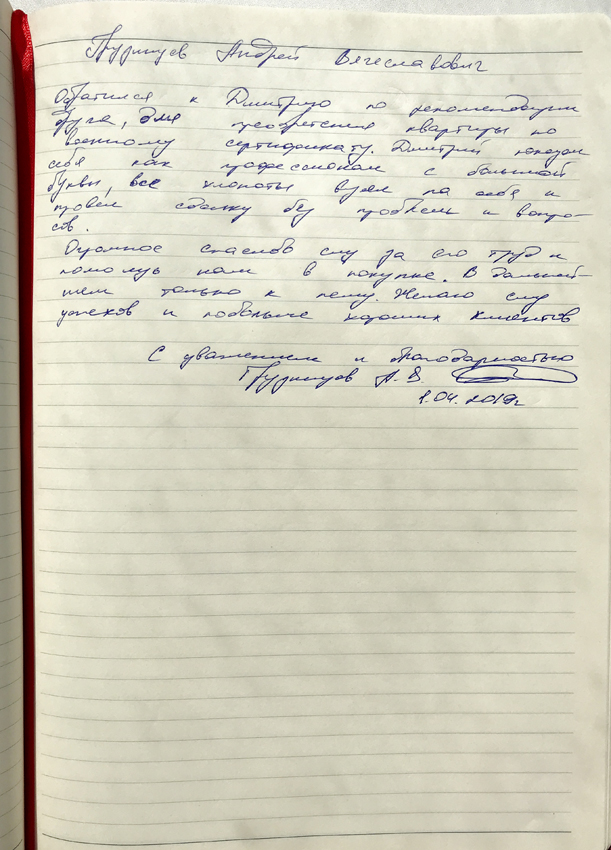 Андрей Вячеславович
Обратился к Дмитрию по рекомендации
друга, для преобретения квартиры по
военному сертификату. Дмитрий показал
себя как профессионал с большой
буквы, все хлопоты взял на себя и
провел сделку без проблем и вопро-
сов.
Огромное спасибо ему за его труд и
помощь нам в покупке. В дальней-
шем только к нему. Желаю ему
успехов и побольше хороших клиентов
С уважением и благодарностью
А. В.
1.04.2019г